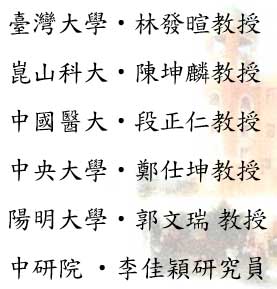 臺灣大學・林發暄教授
崑山科大・陳坤麟教授
中國醫大・段正仁教授
中央大學・鄭仕坤教授
陽明大學・郭文瑞 教授
中研院 ・李佳穎研究員